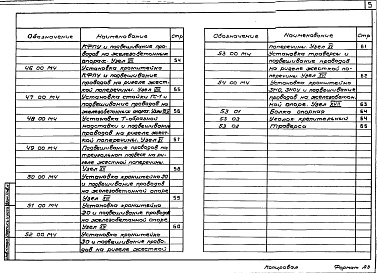 5
Обозначение Наименование Стр
КФПУ и подвешивание про-
водов на железобетонных
опорах. Узел 54
46 00 МЧ Установка кронштейна
КФПУ и подвешивание
проводов на ригеле жест-
кой поперечины. Узел 55
47 00 МЧ Установка стойки
и подвешивание проводов на
железобетонных опорах. 56
48 00 МЧ Установка Т-образной
надставки и подвешивание
проводов на ригеле жест-
кой поперечины. Узел 57
49 00 МЧ Подвешивание проводов на
треугольном подвесе на ри-
геле жесткой поперечины.
Узел 58
50 00 МЧ Установка кронштейна
и подвешивание проводов
на железобетонной опоре
Узел 59
51 00 МЧ Установка кронштейна
и подвешивание проводов
на железобетонной опоре.
Узел 60
52 00 МЧ Установка кронштейна
и подвешивание прово-
дов на ригеле жесткой
Обозначение Наименование Стр
поперечины. Узел 61
53 00 МЧ Установка траверсы и
подвешивание проводов
на ригеле жесткой по-
перечины. Узел 62
54 00 МЧ Установка кронштейна
и подвешивание
проводов на железобетон-
ной опоре. Узел 63
53 01 Балка опорная 64
53 02 Уголок крепительный 64
53 03 Траверса 65
Копировал Формат А3